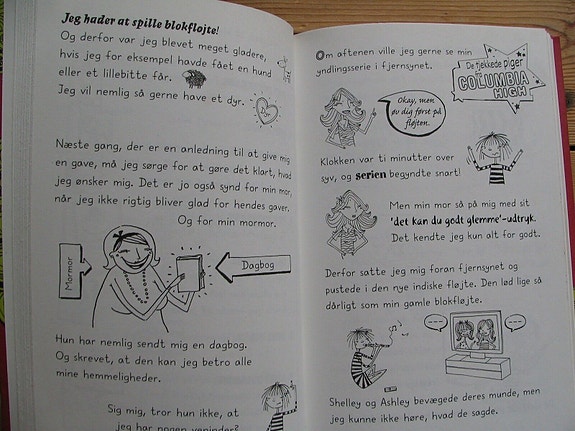 Jeg hader at spille blokfløjte!
Og derfor var jeg blevet meget gladere,
hvis jeg for eksempel havde fået en hund
eller et lillebitte får.
Jeg vil nemlig så gerne have et dyr.
Næste gang, der er en anledning til at give mig
en gave, må jeg sørge for at gøre det klart, hvad
jeg ønsker mig. Det er jo også synd for min mor,
når jeg ikke rigtig bliver glad for hendes gaver.
Og for min mormor.
Mormor
Dagbog
Hun har nemlig sendt mig en dagbog.
Og skrevet, at den kan jeg betro alle
mine hemmeligheder.
Sig mig, tror hun ikke, at
jeg har nogen veninder?
Om aftenen ville jeg gerne se min
yndlingsserie i fjernsynet.
De fjekkede piger
COLUMBIA
HIGH
Okay, men
øv dig først på
fløjten.
Klokken var ti minutter over
syv, og serien begyndte snart!
Men min mor så på mig med sit
'det kan du godt glemme'-udtryk.
Det kendte jeg kun alt for godt.
Derfor satte jeg mig foran fjernsynet og
pustede i den nye indiske fløjte. Den lød lige så
dårligt som min gamle blokfløjte.
Shelley og Ashley bevægede deres munde, men
jeg kunne ikke høre, hvad de sagde.